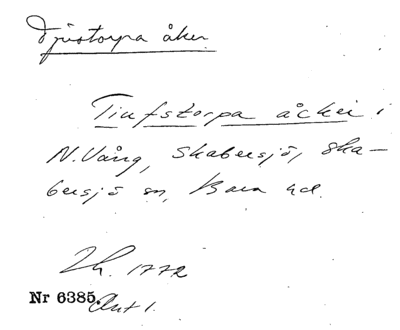 Tjustorpa åker
Tiufstorpa åcker i
N. Vång, Skabersjö, Ska-
bersjö sn, Bara hd.
Lh. 1772
Nr 6385. Akt 1.